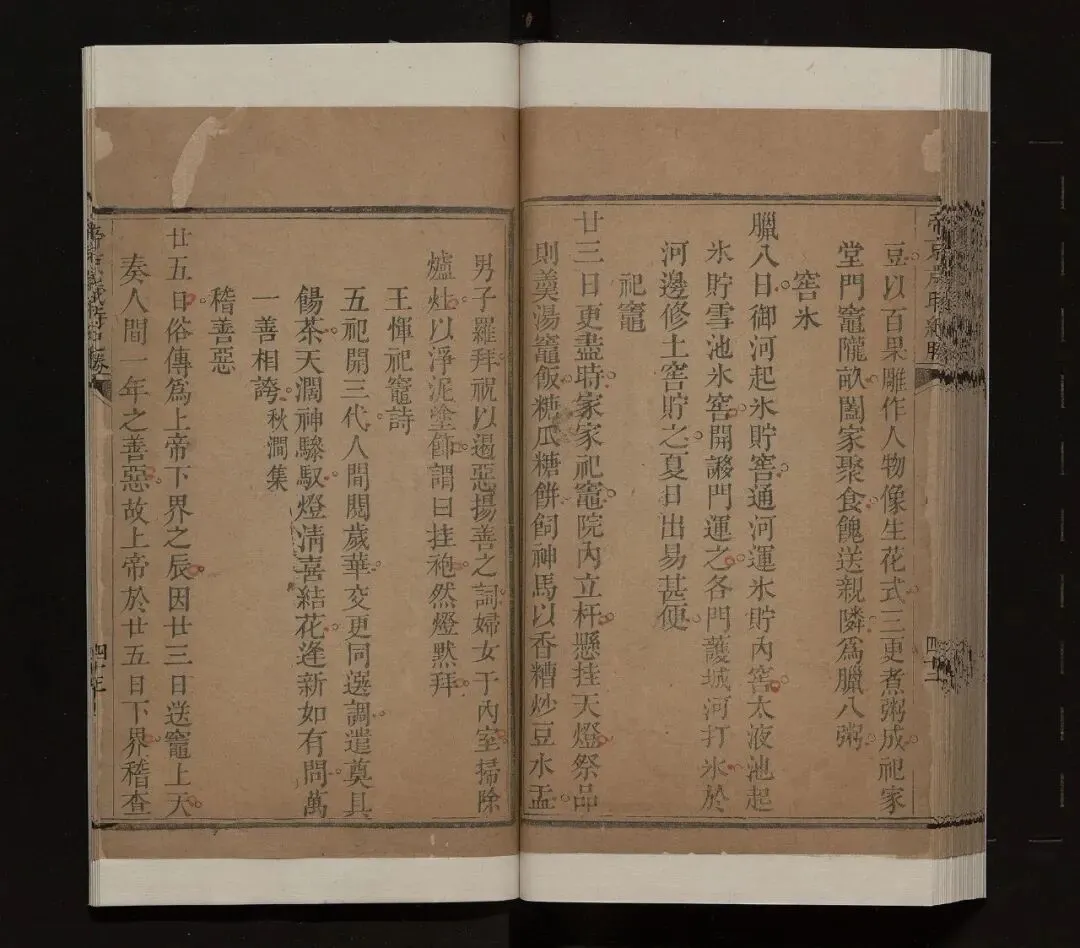 帝京歲時紀勝
豆以百果雕作人物像生花式三更煮粥成祀家
堂門竈隴畝闔家聚食餽送親隣爲臘八粥
窖氷
臘八日御河起氷貯窖通河運氷貯內窖太液池起
氷貯雪池氷窖開諸門運之各門護城河打氷於
河邊修土窖貯之夏日出易甚便
祀竈
廿三日更盡時家家祀竈院內立杆懸挂天燈祭品
則羹湯竈飯糖瓜糖餅飼神馬以香糟炒豆水盂
男子羅拜祝以遏惡揚善之詞婦女于內室掃除
爐灶以淨泥塗飾謂曰挂袍然燈默拜
王惲祀竈詩
五祀開三代人間閱歲華交更同選調遣奠具
餳茶天濶神驂馭燈淸喜結花逢新如有問萬
一善相誇秋澗集
稽善惡
廿五日俗傳爲上帝下界之辰因廿三日送竈上天
奏人間一年之善惡故上帝於廿五日下界稽查